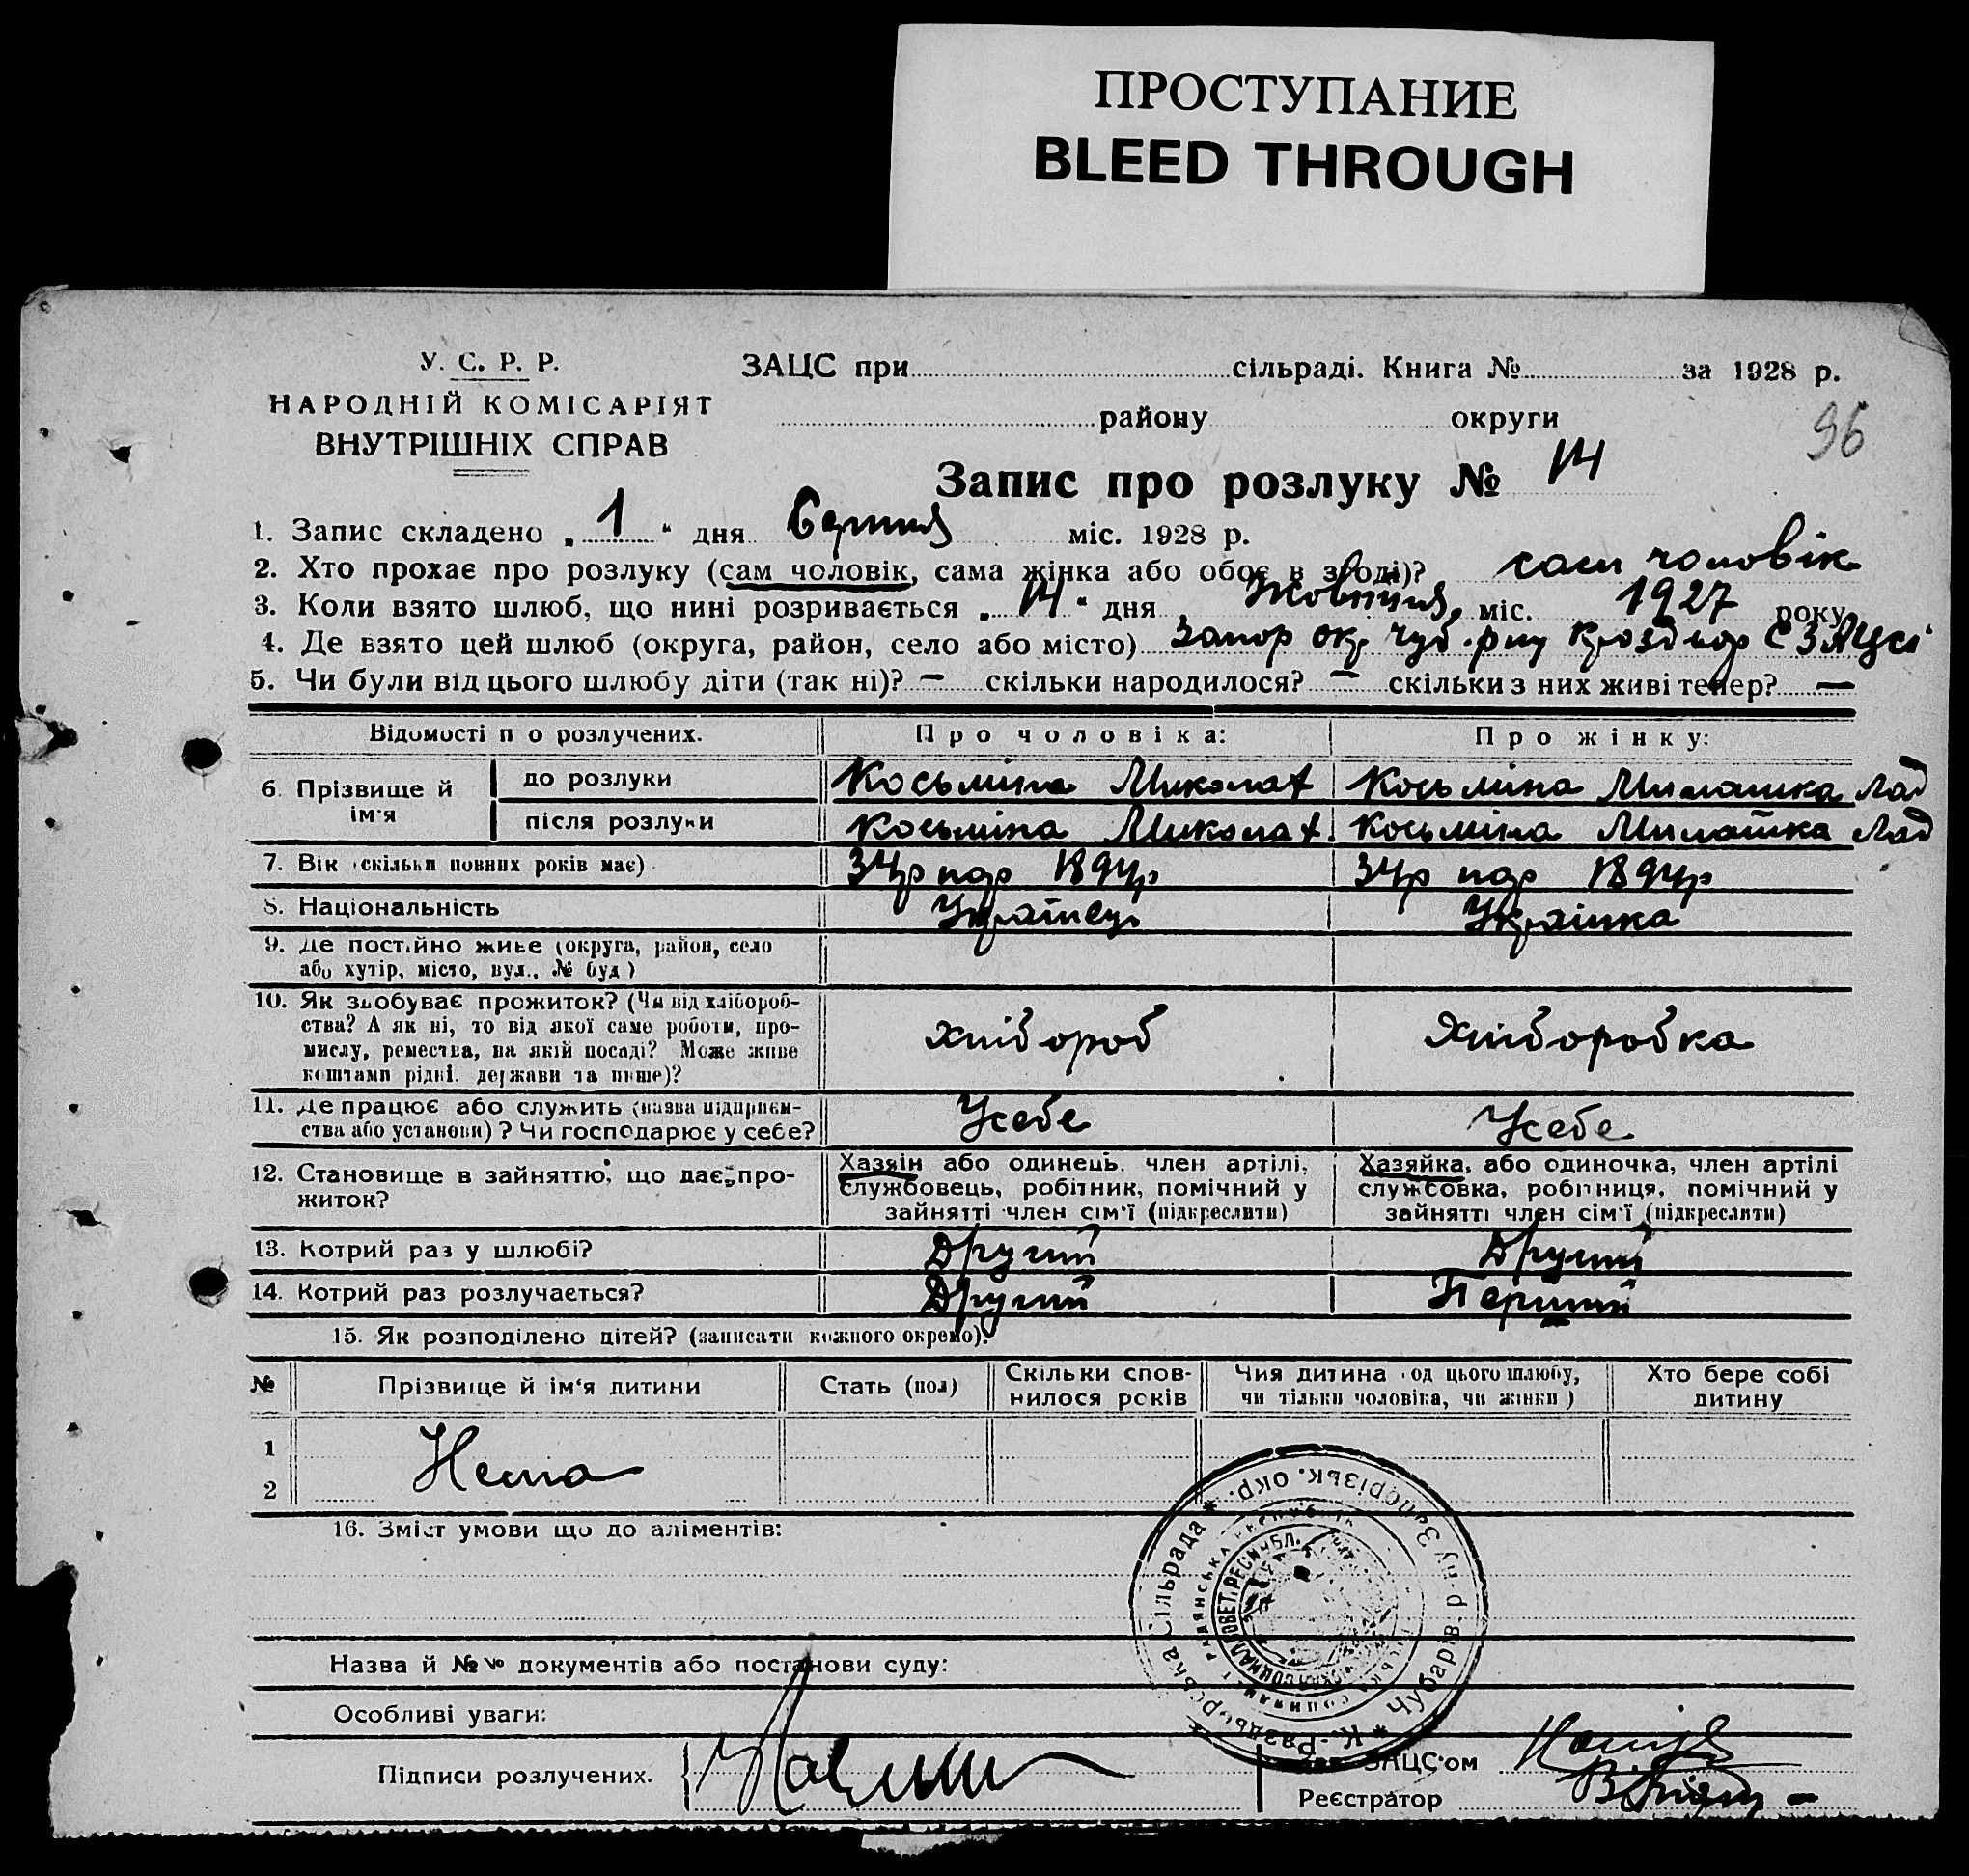 ПРОСТУПАНИЕ
BLEED THROUGH
У. С. Р. Р.
НАРОДНІЙ КОМІСАРІЯТ
ВНУТРІШНІХ СПРАВ
ЗАЦС при сільраді. Книга № за 1928 р.
району округи
96
Запис про розлуку № 14
1. Запис складено „ 1 “ дня Серпня міс. 1928 р.
2. Хто прохає про розлуку (сам чоловік, сама жінка або обоє в згоді)? сам чоловік
3. Коли взято шлюб, що нині розривається „ 14 “ дня Жовтня міс. 1927 року
4. Де взято цей шлюб (округа, район, село або місто) Запор окр Чуб. р-ну
5. Чи були від цього шлюбу діти (так ні)? — скільки народилося? — скільки з них живі тепер? —
Відомості про розлучених. Про чоловіка: Про жінку:
6. Прізвище й ім'я
до розлуки Косьміна Миколат Косьміна Милашка Лад
після розлуки Косьміна Миколат. Косьміна Милашка Лад
7. Вік (скільки повних років має) 34р нар 1894р 34р нар 1894р
8. Національність Українець Українка
9. Де постійно живе (округа, район, село
або хутір, місто, вул., № буд)
10. Як здобуває прожиток? (Чи від хлібороб-
ства? А як ні, то від якої саме роботи, про-
мислу, ремества, на якій посаді? Може живе
коштами рідні. держави та инше)?
хлібороб Хліборобка
11. Де працює або служить (назва підприєм-
ства або установи)? Чи господарює у себе?
Усебе Усебе
12. Становище в зайняттю, що дає про-
житок?
Хазяін або одинець. член артілі,
службовець, робітник, помічний у
зайнятті член сім'ї (підкреслити)
Хазяйка, або одиночка, член артілі
службовка, робітниця, помічний у
зайнятті член сім'ї (підкреслити)
13. Котрий раз у шлюбі? Другий Другий
14. Котрий раз розлучається? Другий Перший
15. Як розподілено дітей? (записати кожного окремо).
№ Прізвище й ім'я дитини Стать (пол) Скільки спов-
нилося років Чия дитина (од цього шлюбу,
чи тільки чоловіка, чи жінки) Хто бере собі
дитину
1
Нема
2
16. Зміст умови що до аліментів:
К.-Раздьорська Сільрада * Запорізьк. окр. Чубарів. р-ну *
Назва й №№ документів або постанови суду:
Особливі уваги:
Підписи розлучених.
Зав. ЗАЦС'ом
Реєстратор